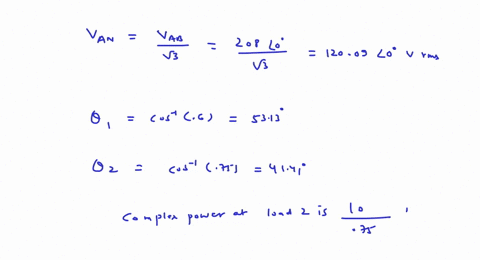 V_AN = V_AB / √3 = 208 ∠0° / √3 = 120.09 ∠0° V rms
θ₁ = cos⁻¹(.6) = 53.13°
θ₂ = cos⁻¹(.75) = 41.41°
Complex power at load 2 is 10 / .75